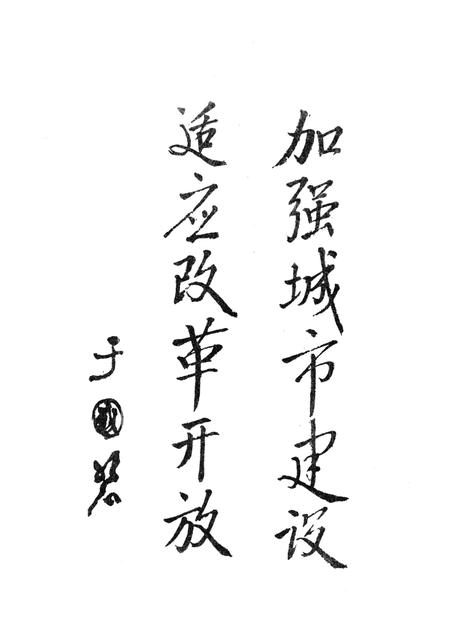 加强城市建设
适应改革开放
于国磐